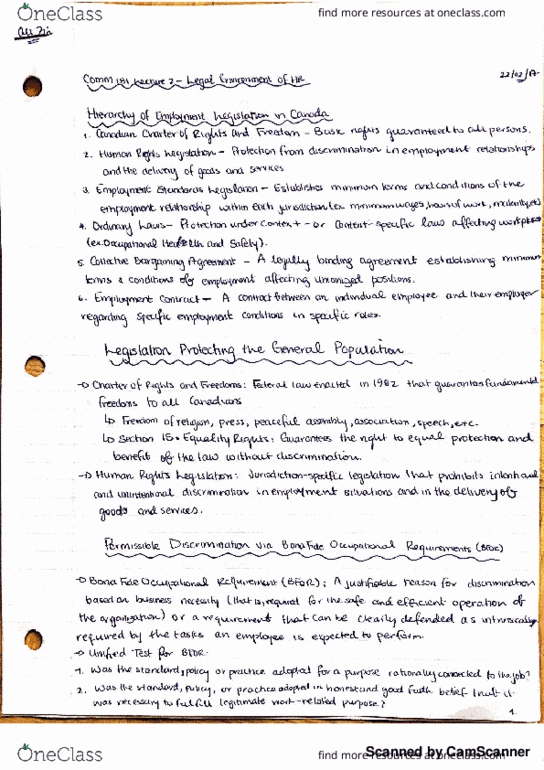 OneClass
find more resources at oneclass.com
Comm 181 Lecture 2 - Legal Environment of HR
22/02/17
Hierarchy of Employment Legislation in Canada
1. Canadian Charter of Rights and Freedom - Basic rights guaranteed to all persons.
2. Human Rights Legislation - Protection from discrimination in employment relationships
and the delivery of goods and services
3. Employment Standards Legislation - Establishes minimum terms and conditions of the
employment relationship within each jurisdiction (ex minimum wages, hours of work,
4. Ordinary Laws - Protection under context- or content-specific laws affecting workplaces
(ex. Occupational Health and Safety).
5. Collective Bargaining Agreement - A legally binding agreement establishing minimum
terms & conditions of employment affecting unionized positions.
6. Employment Contract - A contract between an individual employee and their employer
regarding specific employment conditions in specific roles.
Legislation Protecting the General Population
→ Charter of Rights and Freedoms: Federal law enacted in 1982 that guarantees fundamental
freedoms to all Canadians
↳ Freedom of religion, press, peaceful assembly, association, speech, etc.
↳ Section 15. Equality Rights: Guarantees the right to equal protection and
benefit of the law without discrimination.
→ Human Rights Legislation: Jurisdiction-specific legislation that prohibits intentional
and unintentional discrimination in employment situations and in the delivery of
goods and services.
Permissible Discrimination via Bona Fide Occupational Requirements (BFOR)
→ Bona Fide Occupational Requirement (BFOR): A justifiable reason for discrimination
based on business necessity (that is, required for the safe and efficient operation of
the organisation) or a requirement that can be clearly defended as intrinsically
required by the tasks an employee is expected to perform.
→ Unified Test for BFOR:
1. Was the standard, policy or practice adopted for a purpose rationally connected to the job?
2. Was the standard, policy, or practice adopted in honest and good faith belief that it
was necessary to fulfill legitimate work-related purpose?
1.
OneClass
find more resources at oneclass.com
Scanned by CamScanner